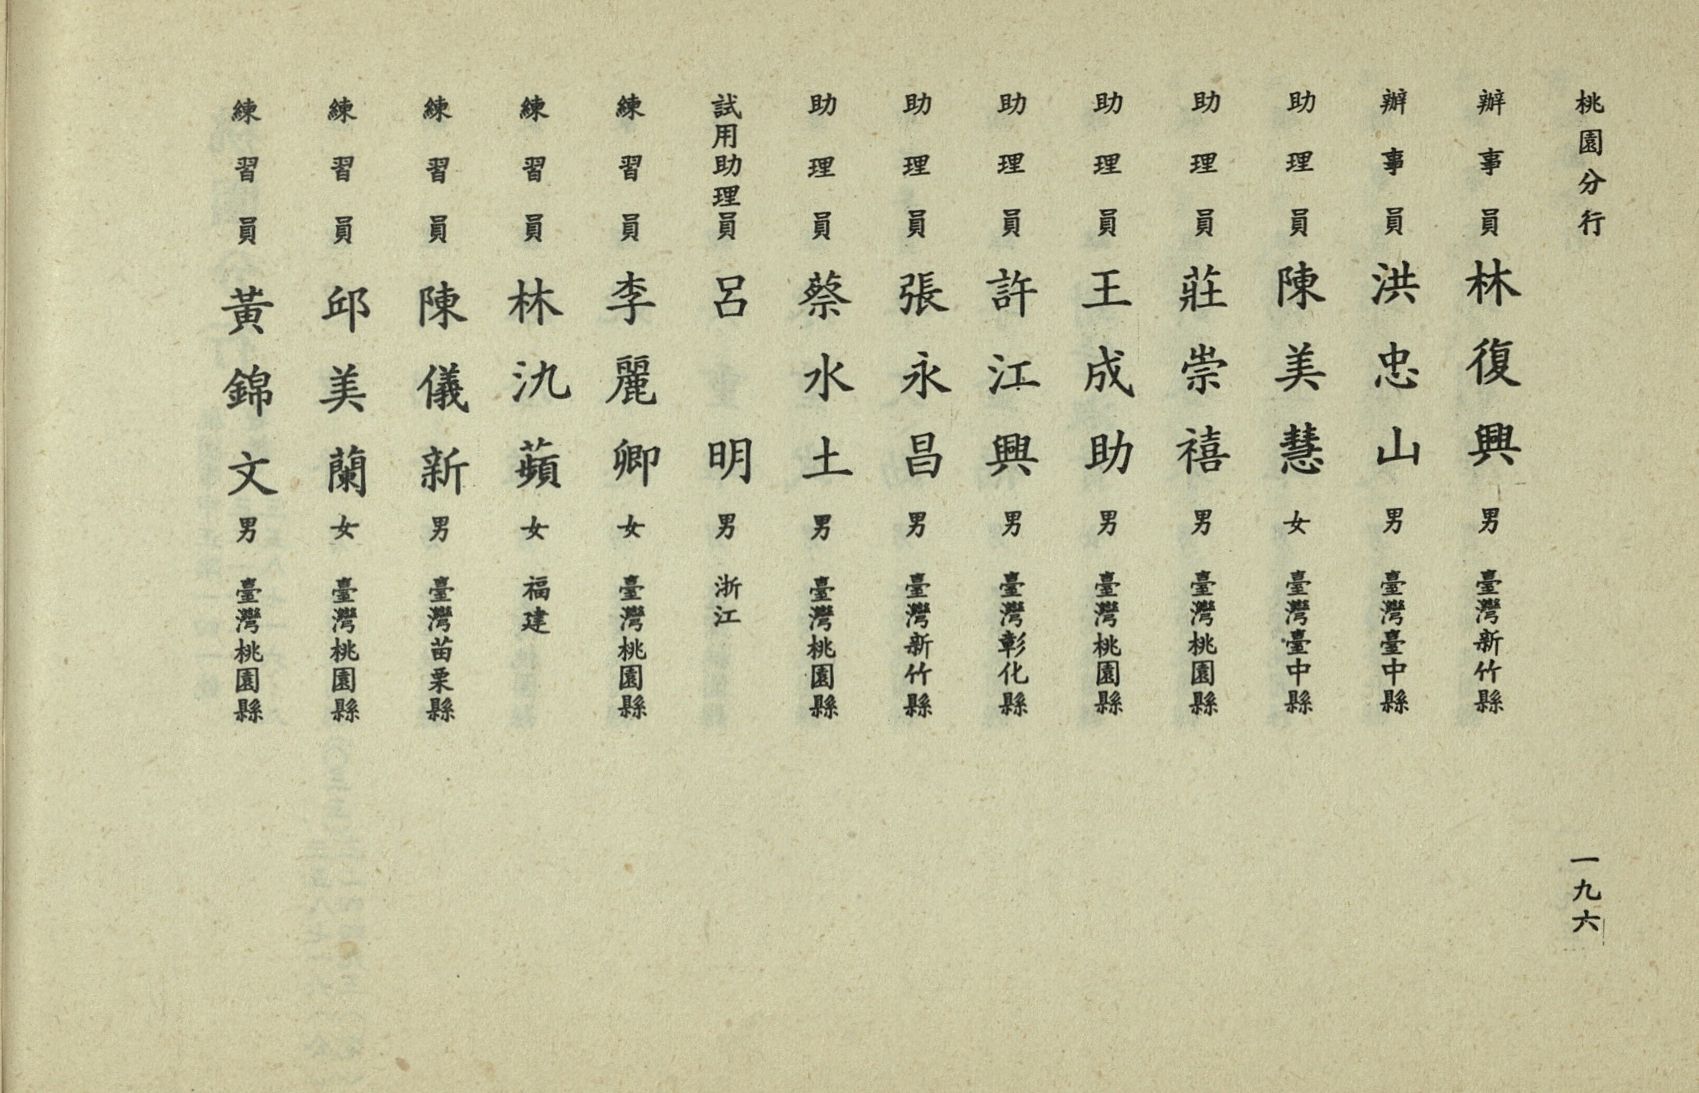 桃園分行
一九六
辦事員 林復興 男 臺灣新竹縣
辦事員 洪忠山 男 臺灣臺中縣
助理員 陳美慧 女 臺灣臺中縣
助理員 莊崇禧 男 臺灣桃園縣
助理員 王成助 男 臺灣桃園縣
助理員 許江興 男 臺灣彰化縣
助理員 張永昌 男 臺灣新竹縣
助理員 蔡水土 男 臺灣桃園縣
試用助理員 呂明 男 浙江
練習員 李麗卿 女 臺灣桃園縣
練習員 林氿蘋 女 福建
練習員 陳儀新 男 臺灣苗栗縣
練習員 邱美蘭 女 臺灣桃園縣
練習員 黃錦文 男 臺灣桃園縣